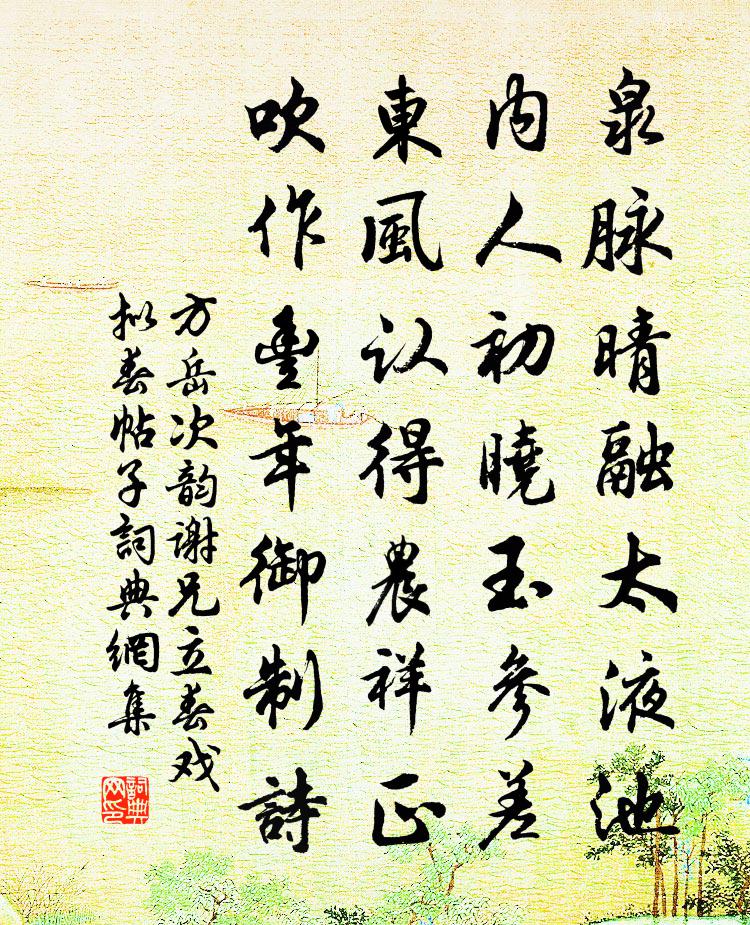 泉脉晴融太液池
内人初曉玉參差
東風认得農祥正
吹作豊年御制詩
方岳次韵谢兄立春戏
拟春帖子詞典網集
詞典网印